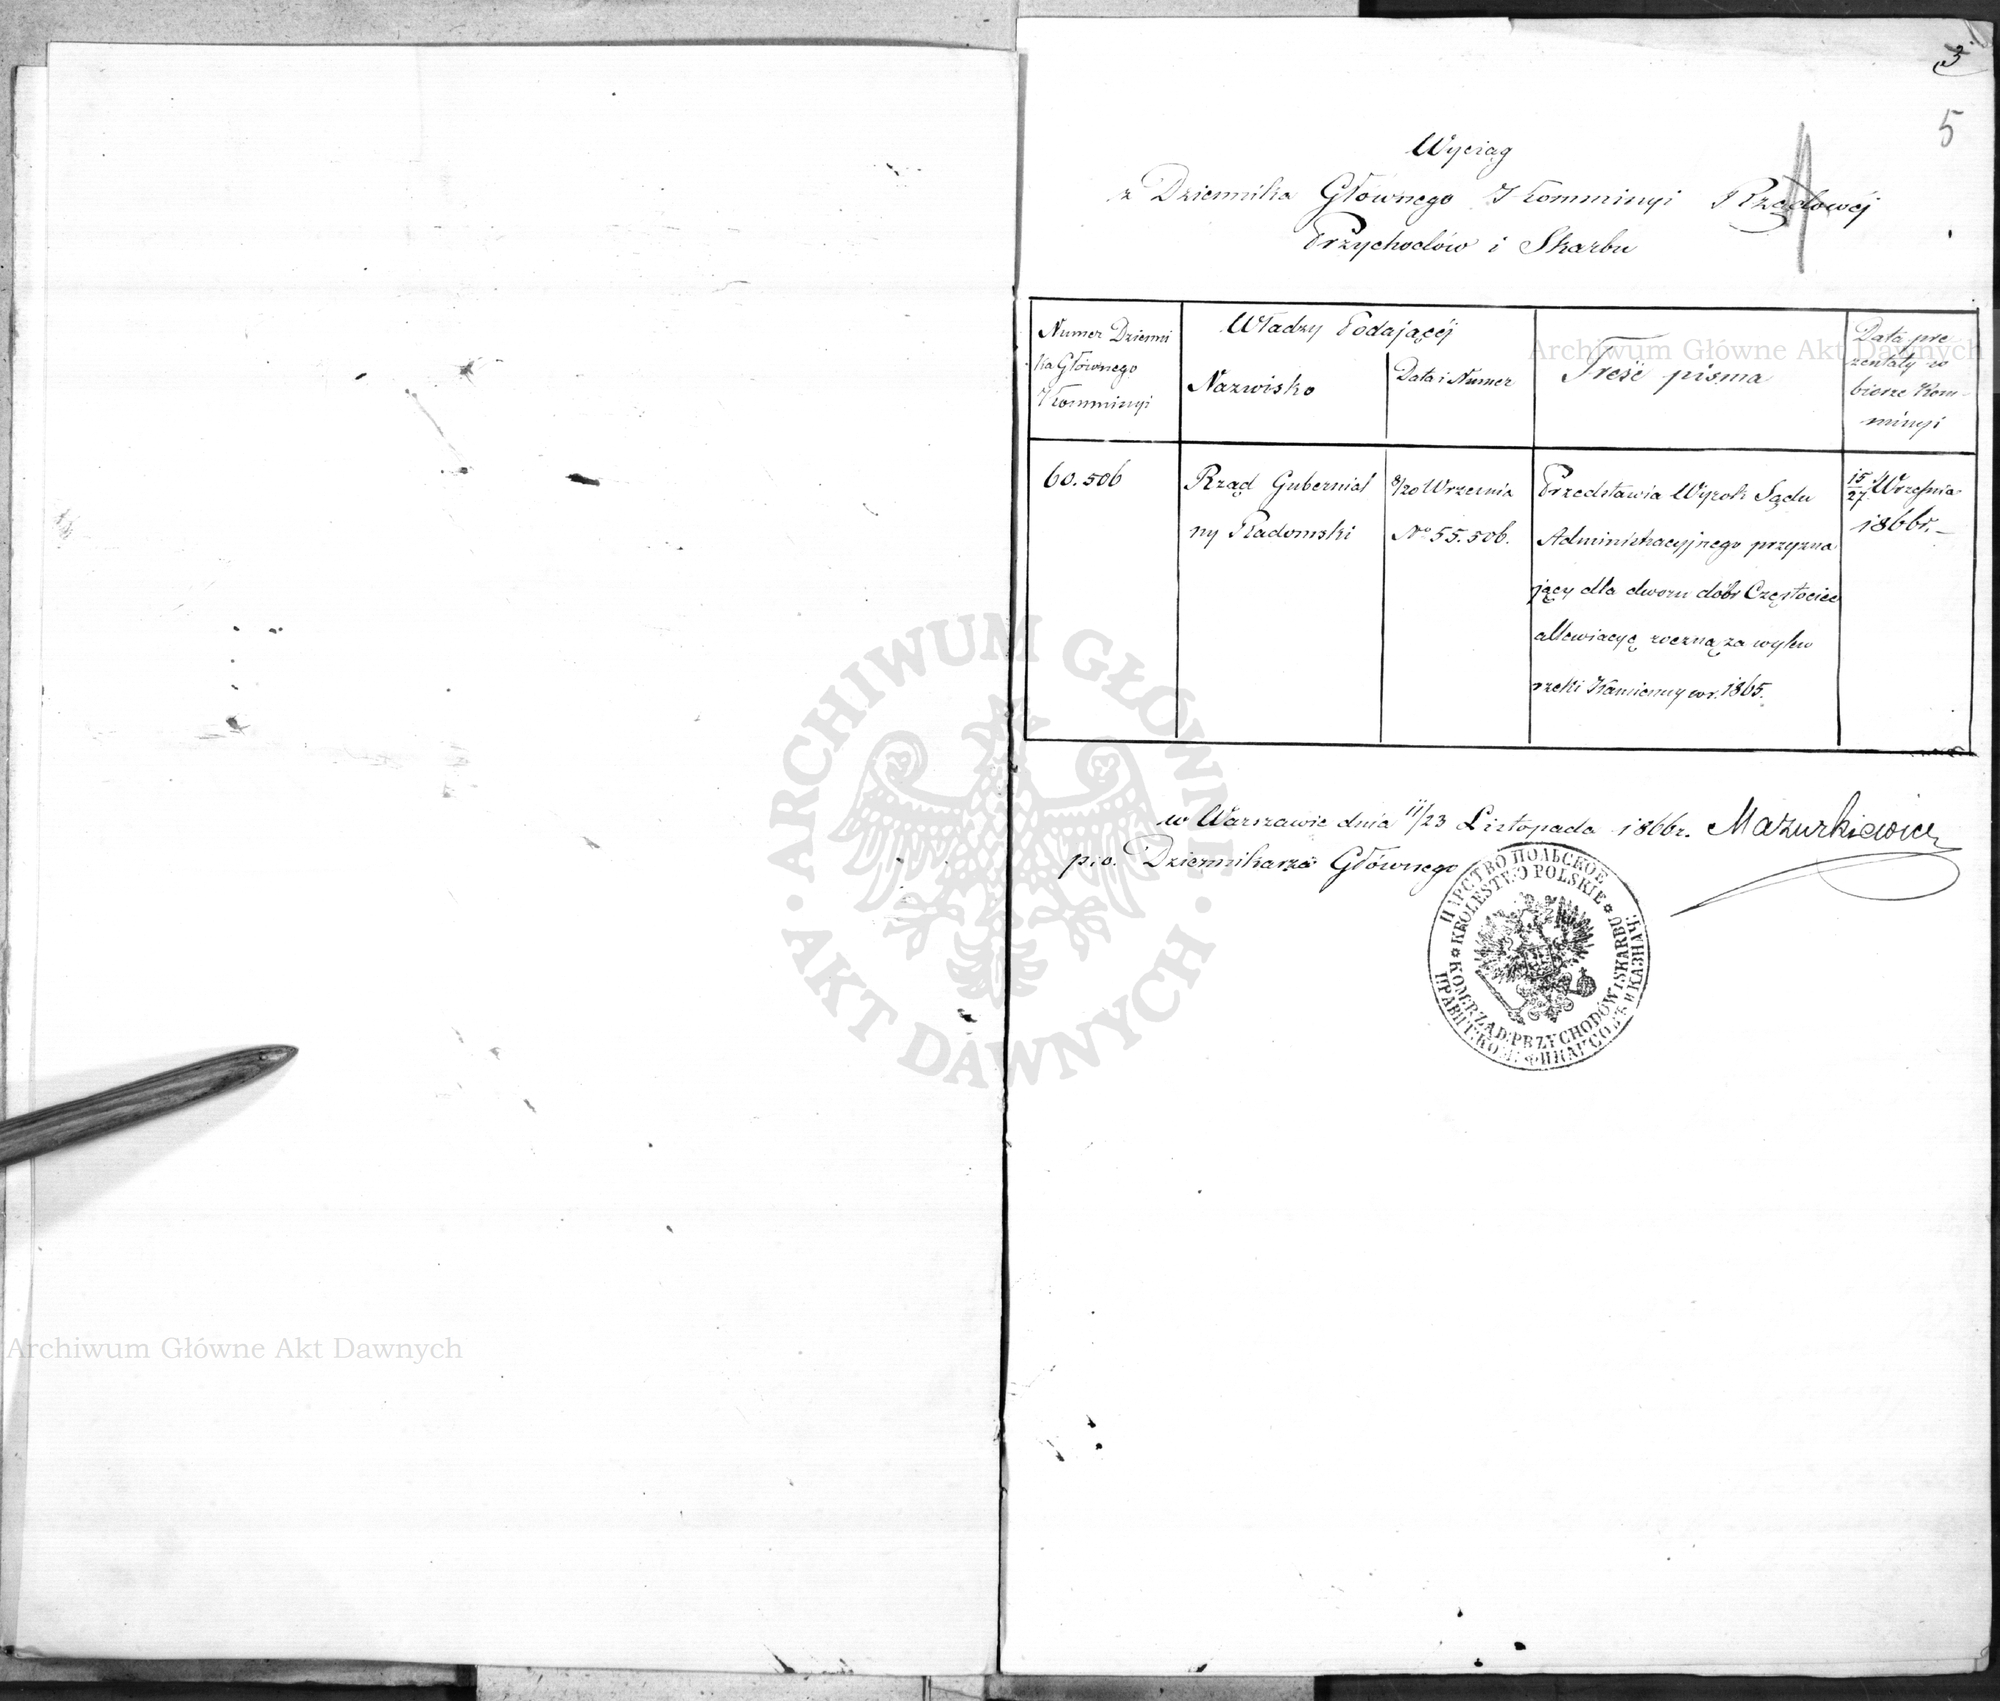 3
5
Wyciąg
z Dziennika Głównego Kommissyi Rządowéj
Przychodów i Skarbu
Numer Dzienni
ka Głównego
Kommissyi
Władzy Podającéj
Nazwisko
Data i Numer
Treść pisma
Data pre
zentaty w
biorze Kom-
missyi
60.506
Rząd Gubernial
ny Radomski
8/20 Września
No 55.506.
Przedstawia Wyrok Sądu
Administracyjnego przyzna
jący dla dworu dóbr Częstocice
allewiacyę roczną za wylew
rzeki Kamienny w r. 1865.
15/27 Września
1866r.
w Warszawie dnia 11/23 Listopada 1866r. Mazurkiewicz
p.o. Dziennikarza Głównego
ЦАРСТВО ПОЛЬСКОЕ
ПРАВИТ. КОМ. ФИНАНСОВЪ И КАЗНАЧ.
KROLESTWO POLSKIE
KOM:RZĄD:PRZYCHODÓW I SKARBU
Archiwum Główne Akt Dawnych
ARCHIWUM GŁÓWNE
AKT DAWNYCH
Archiwum Główne Akt Dawnych